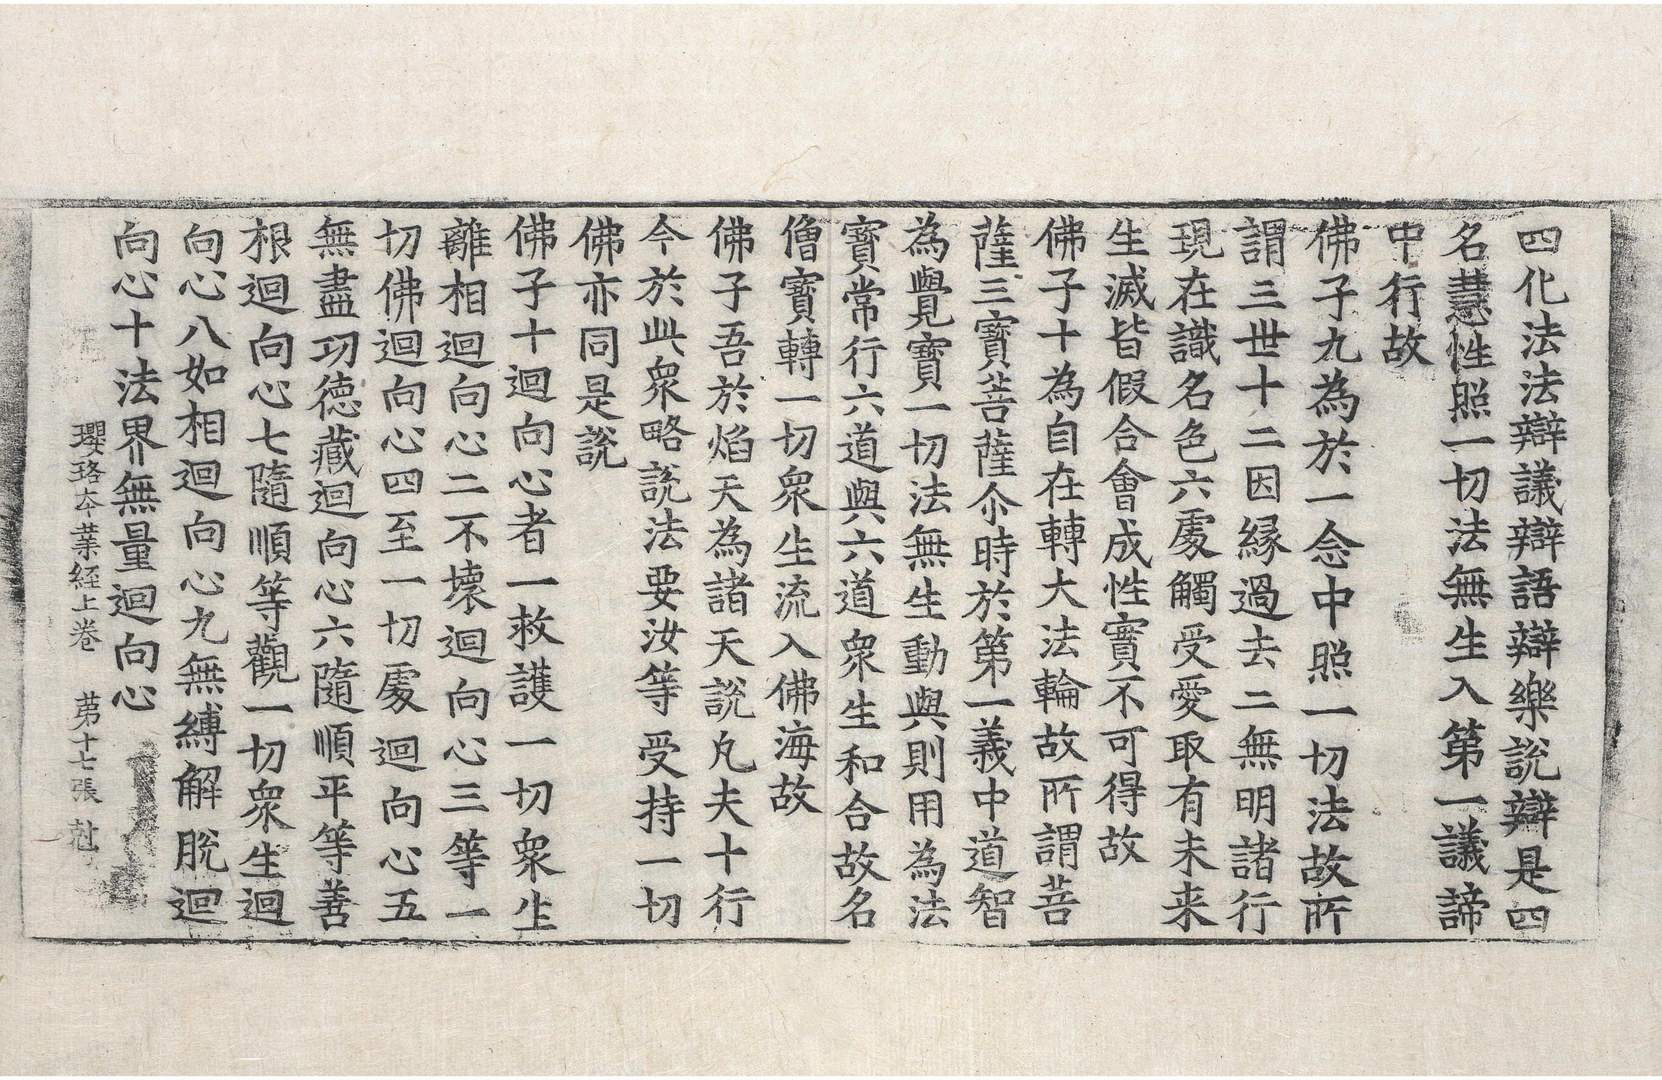 四化法法辯議辯語辯樂說辯是四
名慧性照一切法無生入第一議諦
中行故
佛子九為於一念中照一切法故所
謂三世十二因緣過去二無明諸行
現在識名色六處觸受愛取有未来
生滅皆假合會成性實不可得故
佛子十為自在轉大法輪故所謂菩
薩三寶菩薩尒時於第一義中道智
為覺寶一切法無生動與則用為法
寶常行六道與六道衆生和合故名
僧寶轉一切衆生流入佛海故
佛子吾於焰天為諸天說凡夫十行
今於此衆略說法要汝等受持一切
佛亦同是說
佛子十迴向心者一救護一切衆生
離相迴向心二不壞迴向心三等一
切佛迴向心四至一切處迴向心五
無盡功德藏迴向心六隨順平等善
根迴向心七隨順等觀一切衆生迴
向心八如相迴向心九無縛解脫迴
向心十法界無量迴向心
瓔珞本業経上卷 苐十七張